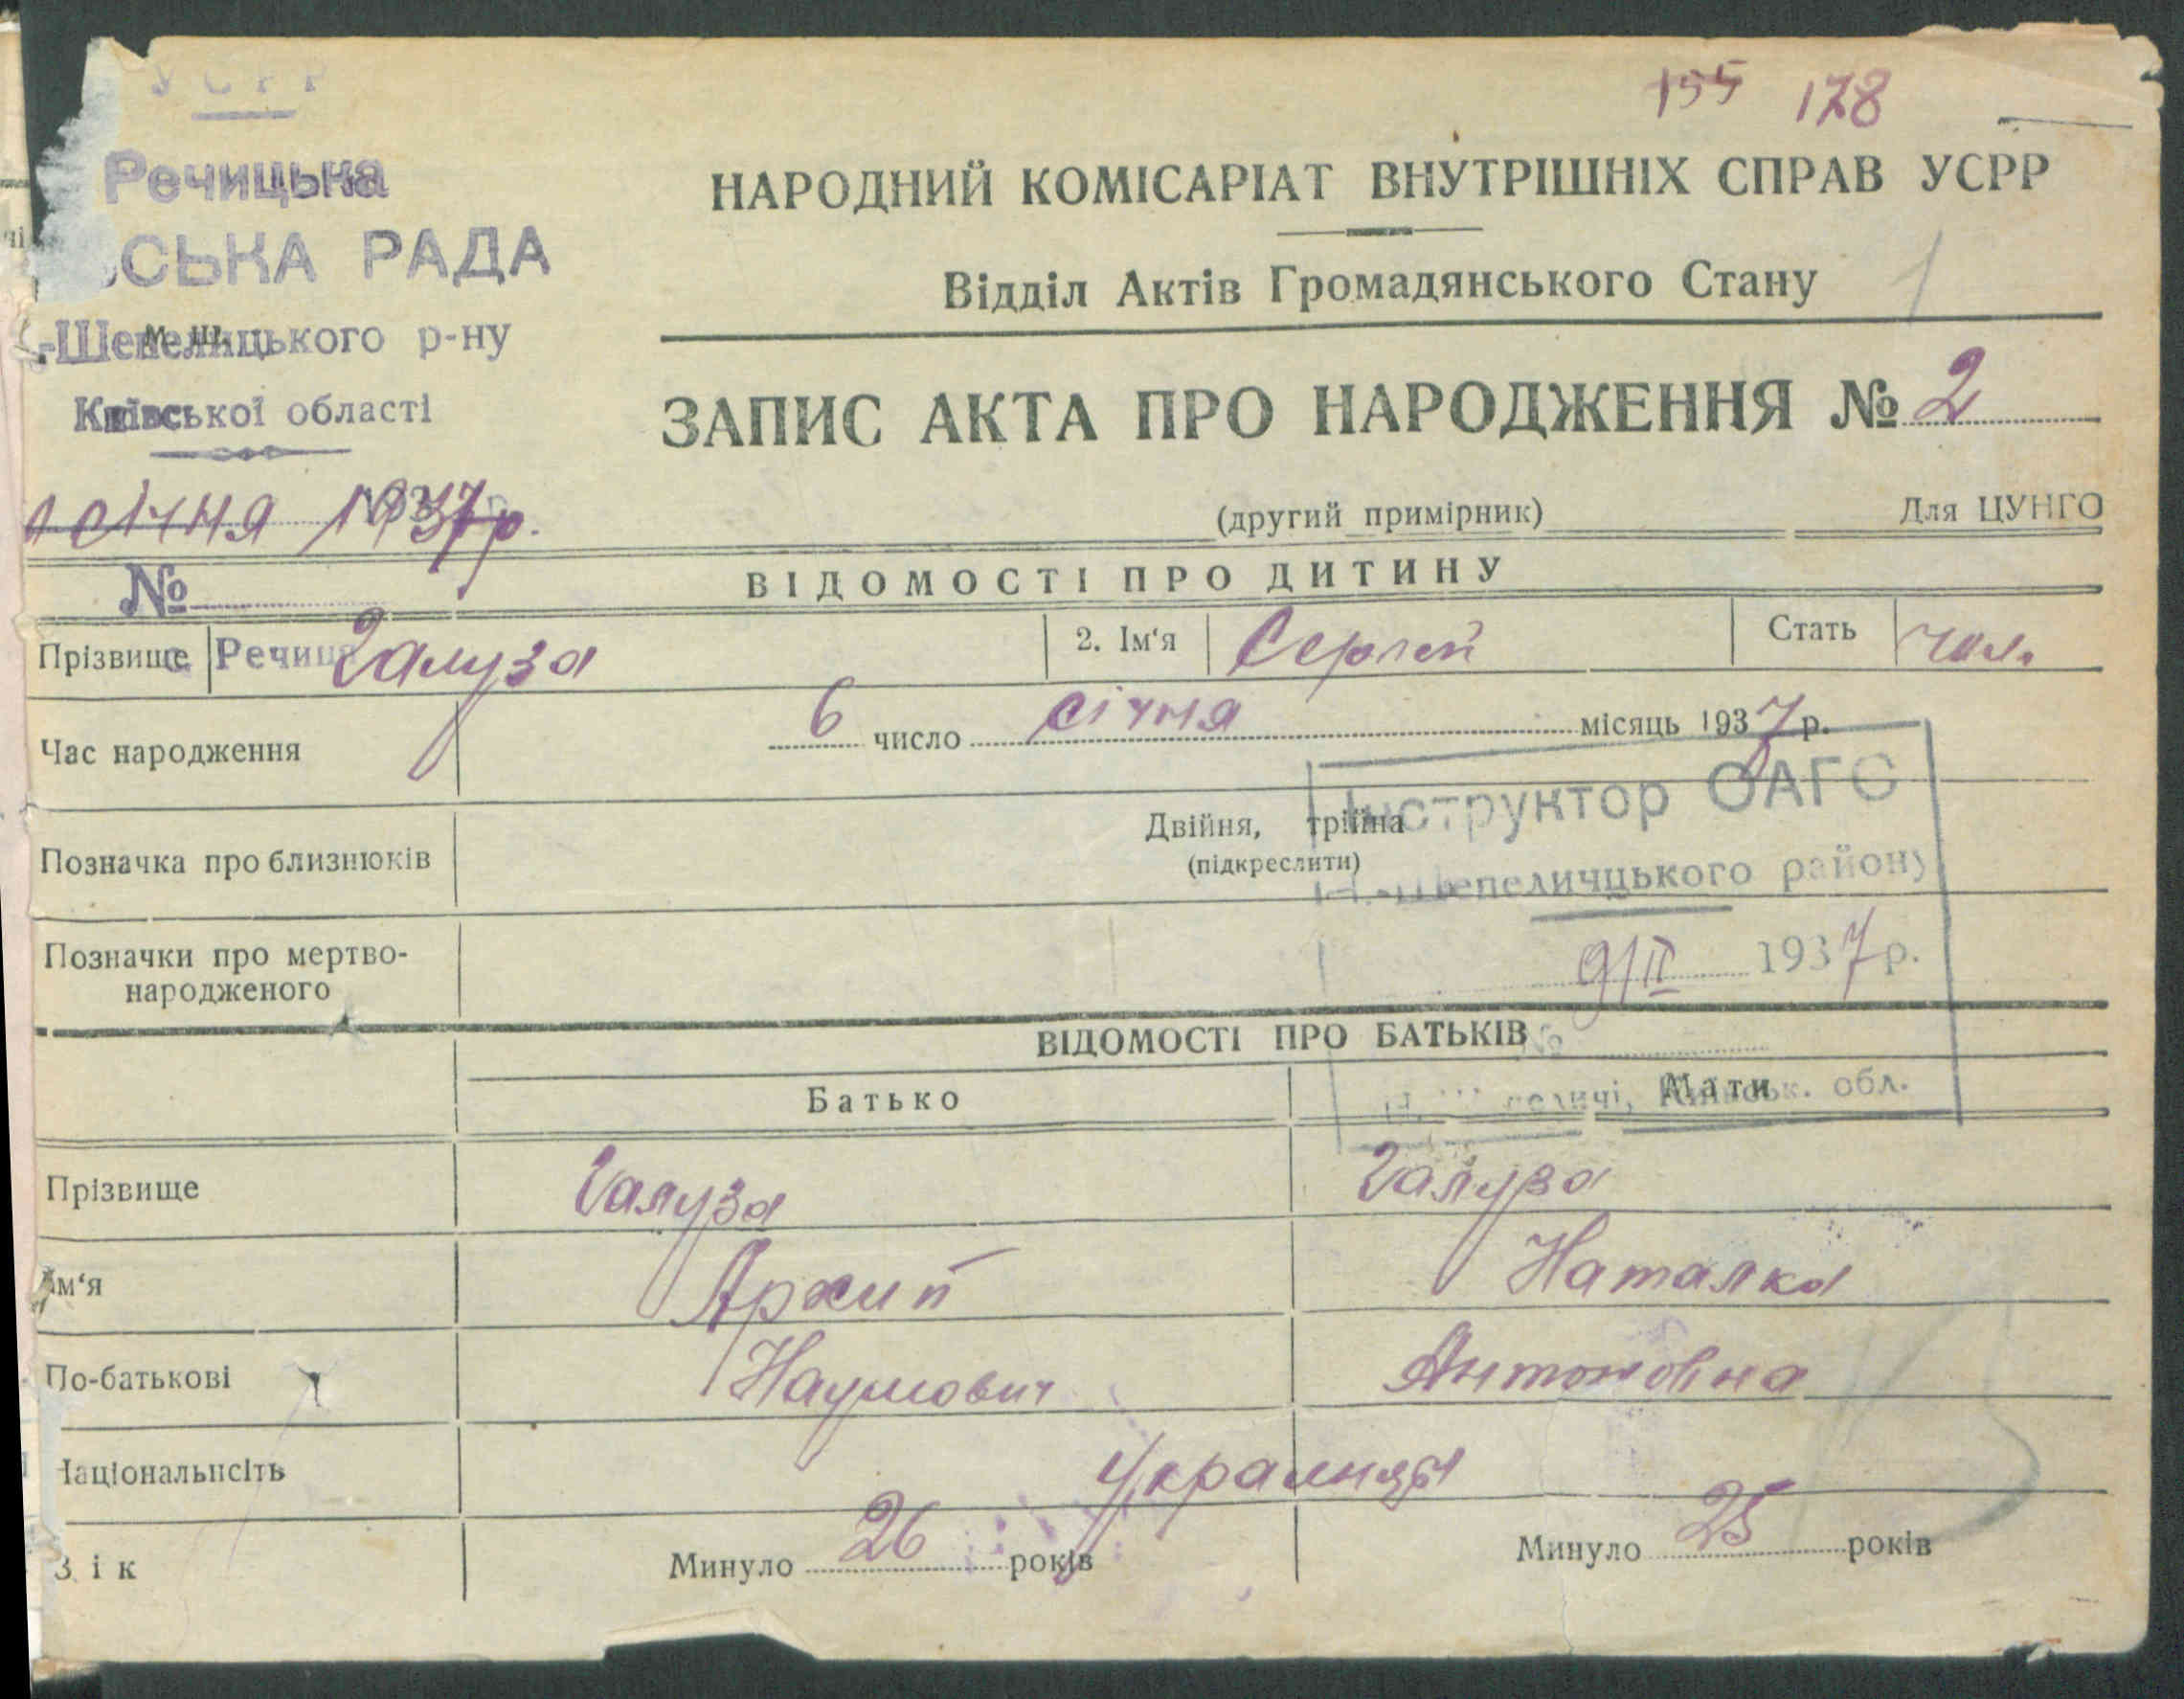 УСРР
155 178
Речицька
СЬКА РАДА
-Шепелицького р-ну
Київської області
НАРОДНИЙ КОМІСАРІАТ ВНУТРІШНІХ СПРАВ УСРР
Відділ Актів Громадянського Стану
ЗАПИС АКТА ПРО НАРОДЖЕННЯ № 2
січня 1937р.
(другий примірник) Для ЦУНГО
№
ВІДОМОСТІ ПРО ДИТИНУ
Прізвище с. Речиця Галуза 2. Ім'я Сергей Стать чол.
Час народження 6 число січня місяць 1937 р.
Інструктор ОАГС
Позначка про близнюків Двійня, трійна
(підкреслити)
Н.-Шепеличцького району
Позначки про мертво-
народженого
9/II 1937р.
ВІДОМОСТІ ПРО БАТЬКІВ
№
Батько Мати
Н. Шепеличі, Київськ. обл.
Прізвище Галуза Галуза
Ім'я Архип Наталка
По-батькові Наумович Антоновна
Національнсіть Украинцы
Вік Минуло 26 років Минуло 25 років